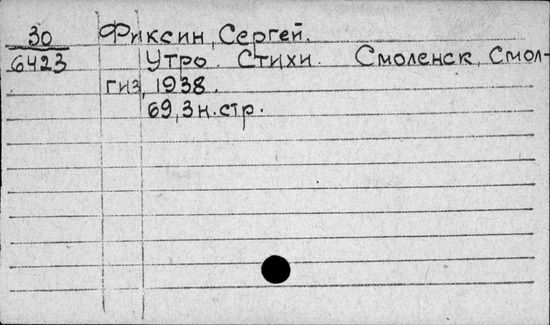 30 Фиксин, Сергей.
6423 Утро. Стихи. Смоленск, Смол-
гиз, 1938.
69, 3 н. стр.